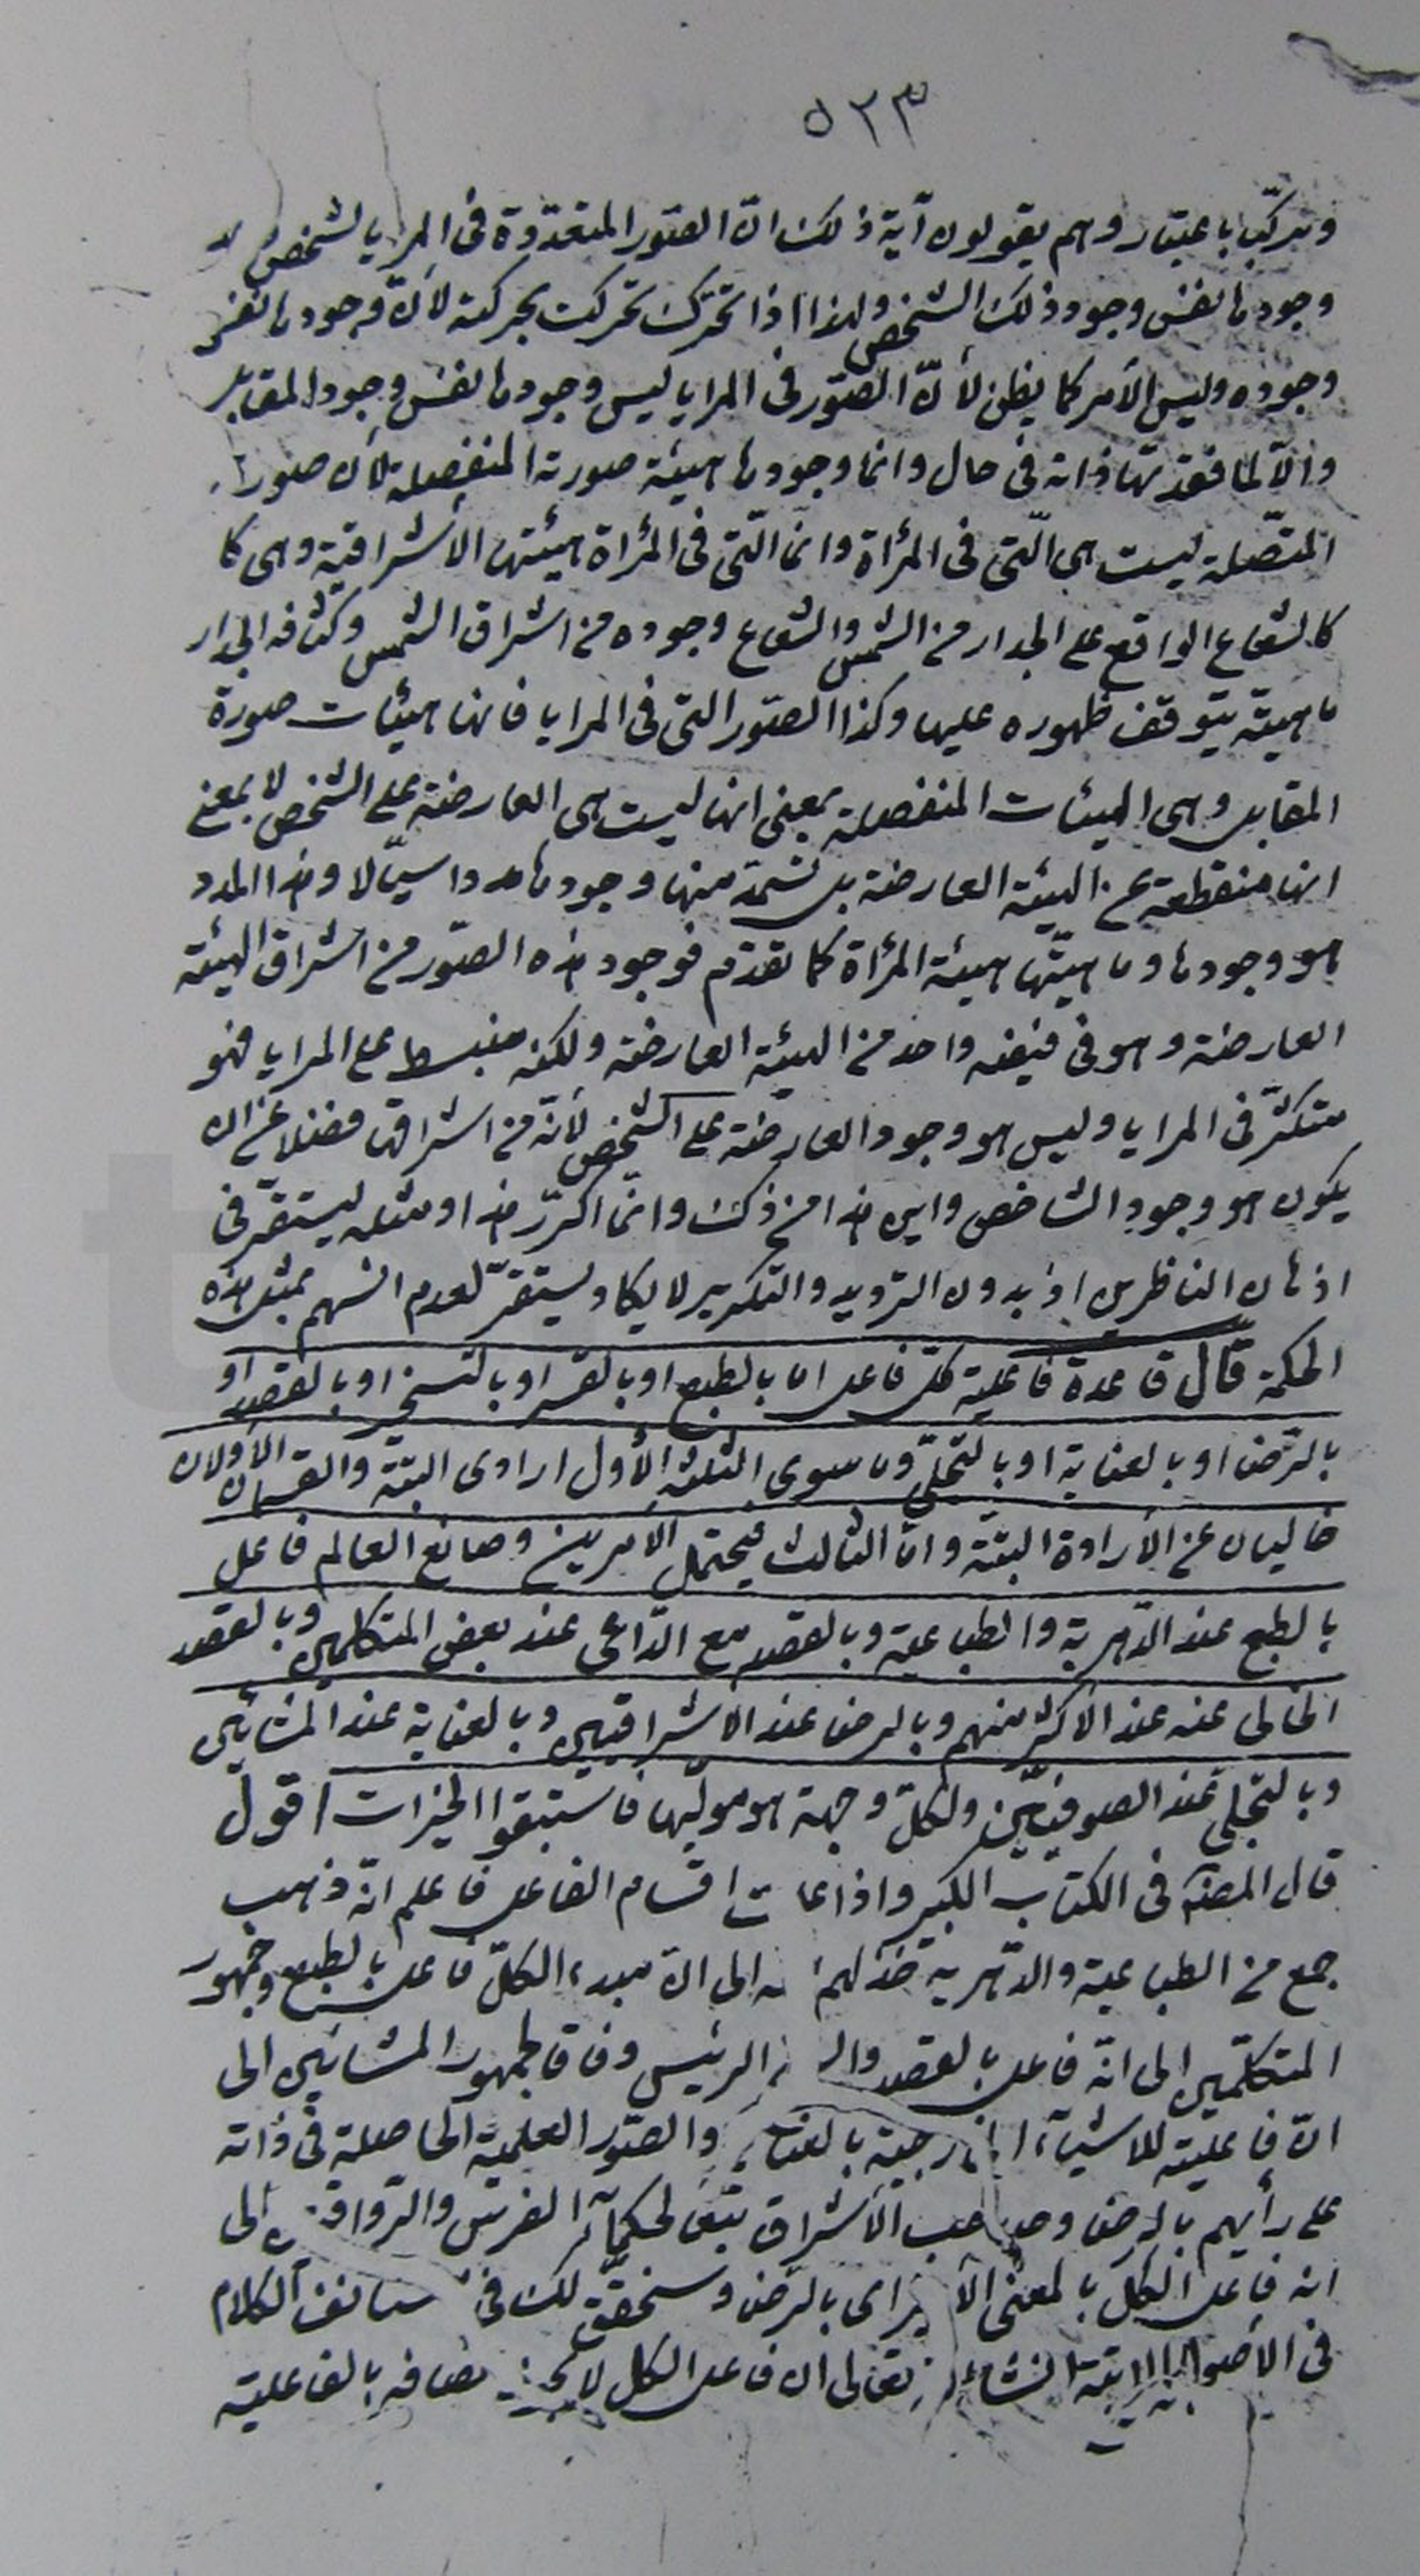 ٥٢٣
وتركّب باعتبار وهم يقولون آية ذلك انّ الصّور المتعدّدة فى المرايا لشخص
وجودها نفس وجود ذلك الشخص ولهذا اذا تحرّك تحركت بحركته لأنّ وجودها نفس
وجوده وليس الأمر كما يظن لأنّ الصّور فى المرايا ليس وجودها نفس وجود المقابل
والّا لما فقدتها ذاته فى حال وانما وجودها هيئة صورته المنفصلة لأن صورته
المتّصلة ليست هى الّتى فى المرأة وانّما الّتى فى المرأة هيئتها الأشراقية وهى كا
كالشعاع الواقع على الجدار من الشمس والشعاع وجوده من اشراق الشمس وكثافة الجدار
ماهيته يتوقف ظهوره عليها وكذا الصّور التى فى المرايا فانها هيئات صورة
المقابل وهى الهيئات المنفصلة بمعنى انها ليست هى العارضة على الشخص لا بمعنى
انها منقطعة عن الهيئة العارضة بل تستمد منها وجودها مددا سيّالا وهذا المدد
هو وجودها وماهيتها هيئة المرأة كما تقدّم فوجود هذه الصّور من اشراق الهيئة
العارضة وهو فى نفسه واحد من الهيئة العارضة ولكنه منبسط على المرايا فهو
متكثّر فى المرايا وليس هو وجود العارضة على الشخص لأنّه من اشراقها فضلا عن ان
يكون هو وجود الشاخص واين هذا من ذلك وانّما اكرّر هذا ومثله ليستقرّ فى
اذهان الناظرين اذ بدون الترديد والتكرير لا يكاد يستقرّ لعدم انسهم بمثل هذه
الحكمة قال قاعدة فاعلية كلّ فاعل اما بالطبع او بالقسر او بالتسخير او بالقصد او
بالرّضا او بالعناية او بالتّجلّى وما سوى الثلثة الأول ارادى البتّة والقسمان الأولان
خاليان عن الأرادة البتّة وامّا الثالث فيحتمل الأمرين وصانع العالم فاعل
بالطبع عند الدّهرية والطباعية وبالقصد مع الدّاعى عند بعض المتكلمين وبالقصد
الخالى عنه عند الأكثر منهم وبالرضا عند الاشراقيين وبالعناية عند المشائين
وبالتجلى عند الصوفيّين ولكلّ وجهة هو مولّيها فاستبقوا الخيرات اقول
قال المصنّف فى الكتاب الكبير واذا علمت اقسام الفاعل فاعلم انّه ذهب
جمع من الطباعية والدّهرية خذلهم الله الى انّ مبدء الكلّ فاعل بالطبع وجمهور
المتكلّمين الى انّه فاعل بالقصد والشيخ الرئيس وفاقا لجمهور المشائين الى
انّ فاعليته للاشيآء الخارجية بالعناية والصّور العلمية الحاصلة فى ذاته
على رأيهم بالرضا وصاحب الأشراق تبعا لحكمآء الفرس والرّواقيين الى
انه فاعل الكل بالمعنى الأخير اى بالرّضا وسنحقق لك فى مستأنف الكلام
فى الأصول الآتية انشاء الله تعالى ان فاعل الكل لا يجوز اتصافه بالفاعلية